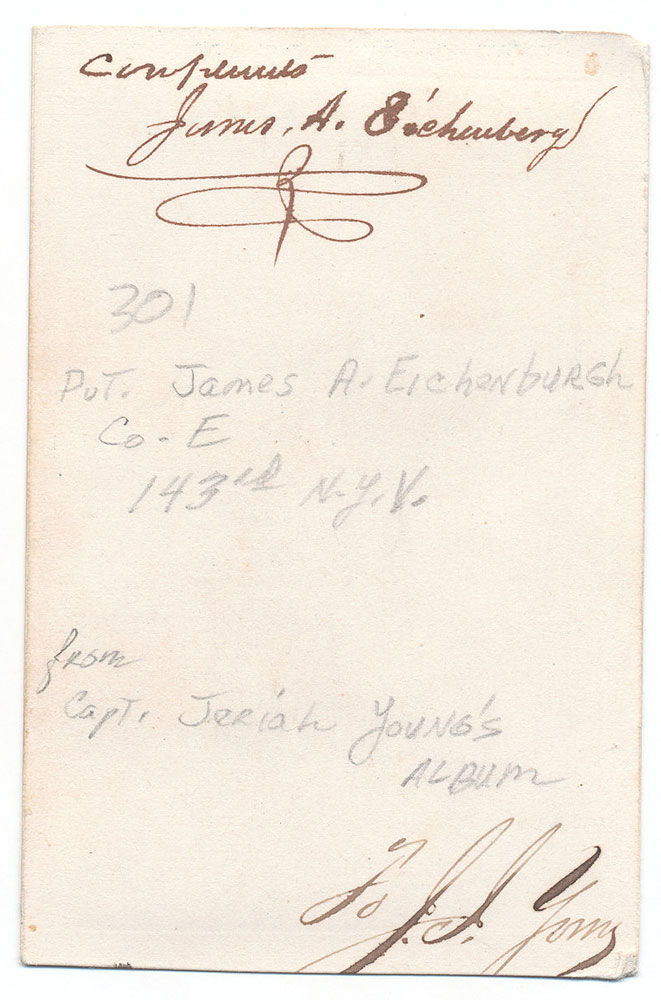 Compliments
James. A. Eichenberg
301
Pvt. James A. Eichenburgh
Co - E
143rd N.Y.V.
from
Capt. Jeriah Young's
Album
To J. I. Young